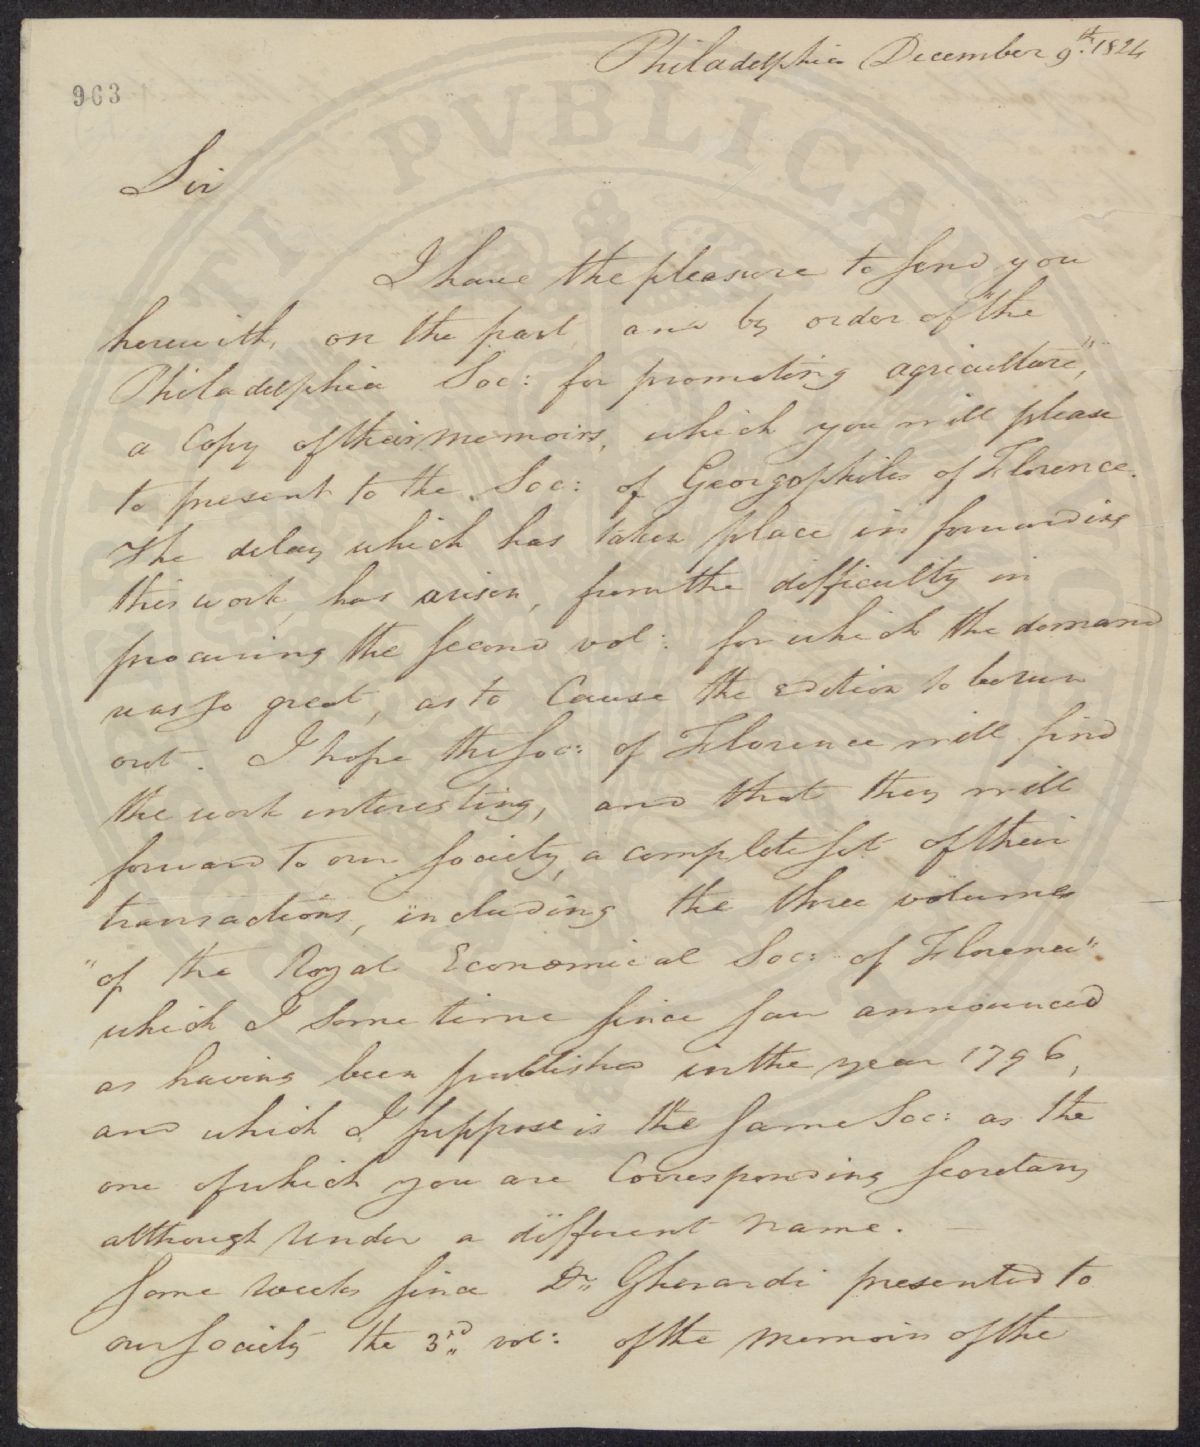 Philadelphia December 9th. 1824
963
Sir
I have the pleasure to send you
herewith, on the part and by order of "the
Philadelphia Soc: for promoting agriculture",
a Copy of their memoirs, which you will please
to present to the Soc: of Georgophiles of Florence.
The delay which has taken place in forwarding
this work, has arisen, from the difficulty in
procuring the second vol: for which the demand
was so great, as to Cause the edition to be run
out. I hope the Soc: of Florence will find
the work interesting, and that they will
forward to our society, a complete set of their
transactions, including the three volumes
"of the Royal Economical Soc: of Florence".
which I some time since saw announced
as having been published in the year 1796,
and which I suppose is the same Soc: as the
one of which you are Corresponding secretary
although under a different name. —
Some weeks since Dr. Gherardi presented to
our society the 3rd vol: of the memoirs of the